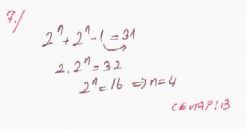 7./
2ⁿ+2ⁿ-1=31
2.2ⁿ=32
2ⁿ=16 ⇒n=4
CEVAP:B